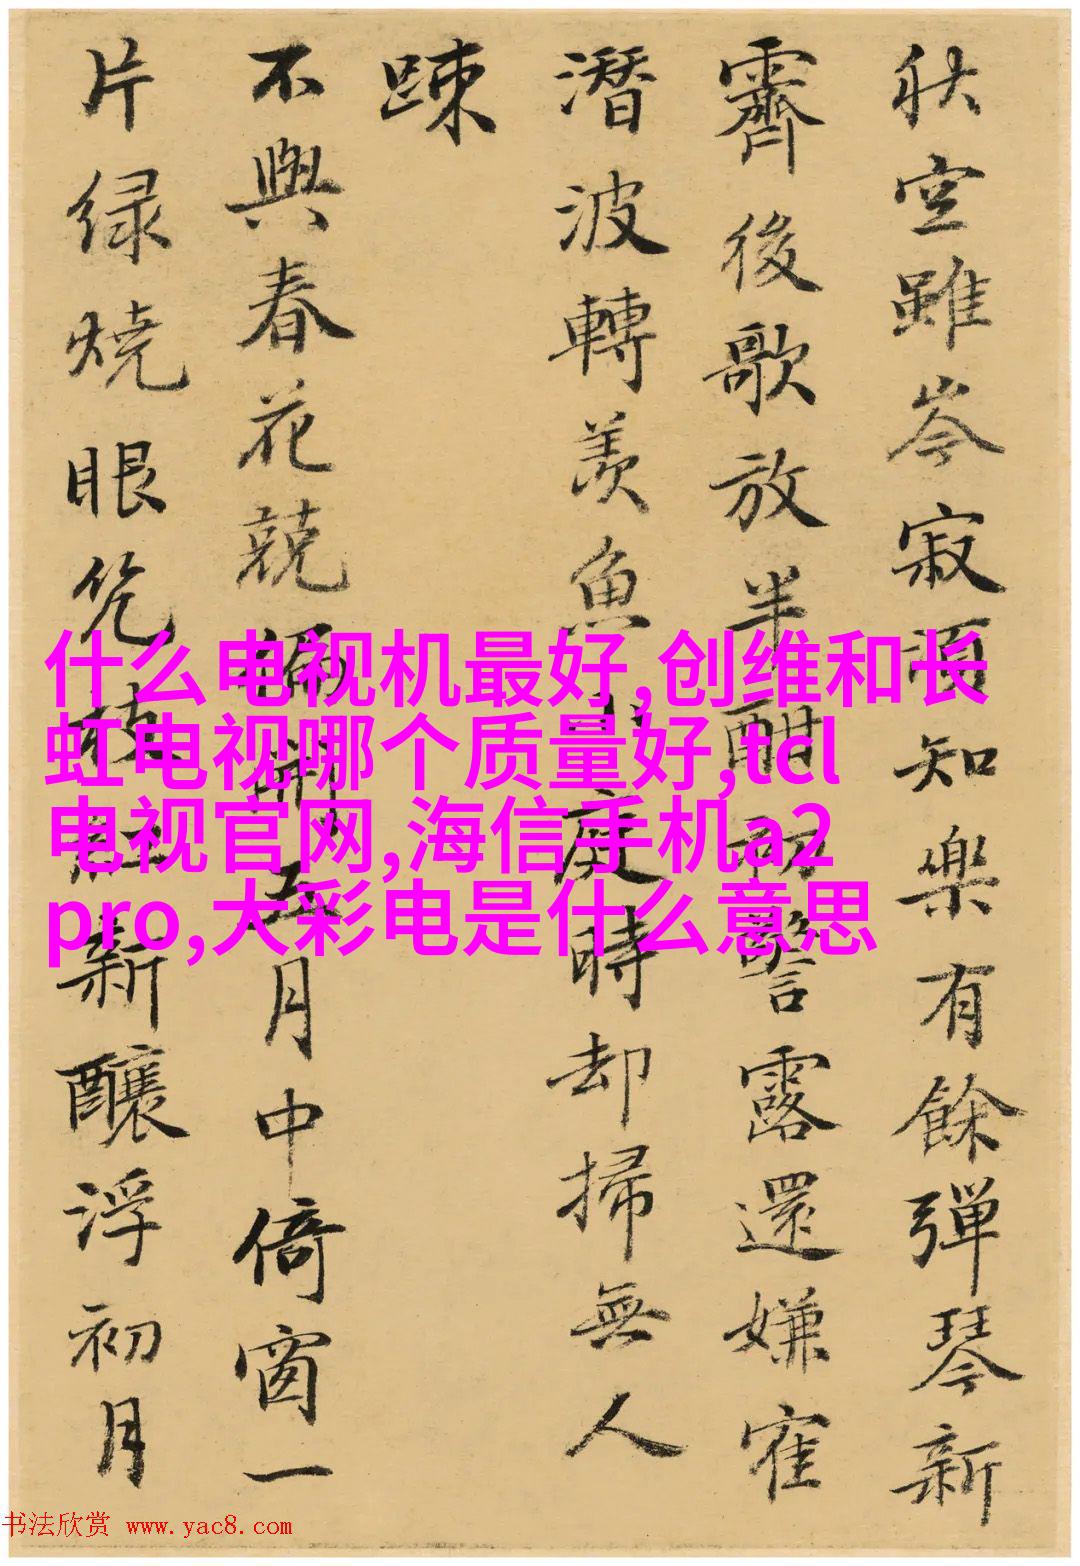 秋空雖岑寂知樂有餘彈琴新
霽後歌放半酣初警露還嫌寉
潛波轉羨魚小庭時却掃無人
踈
不與春花競偏明五月中倚窗一
片绿燒眼枝紅新釀浮初月
什么电视机最好,创维和长
虹电视哪个质量好,tcl
电视官网,海信手机a2
pro,大彩电是什么意思
书法欣赏 www.yac8.com